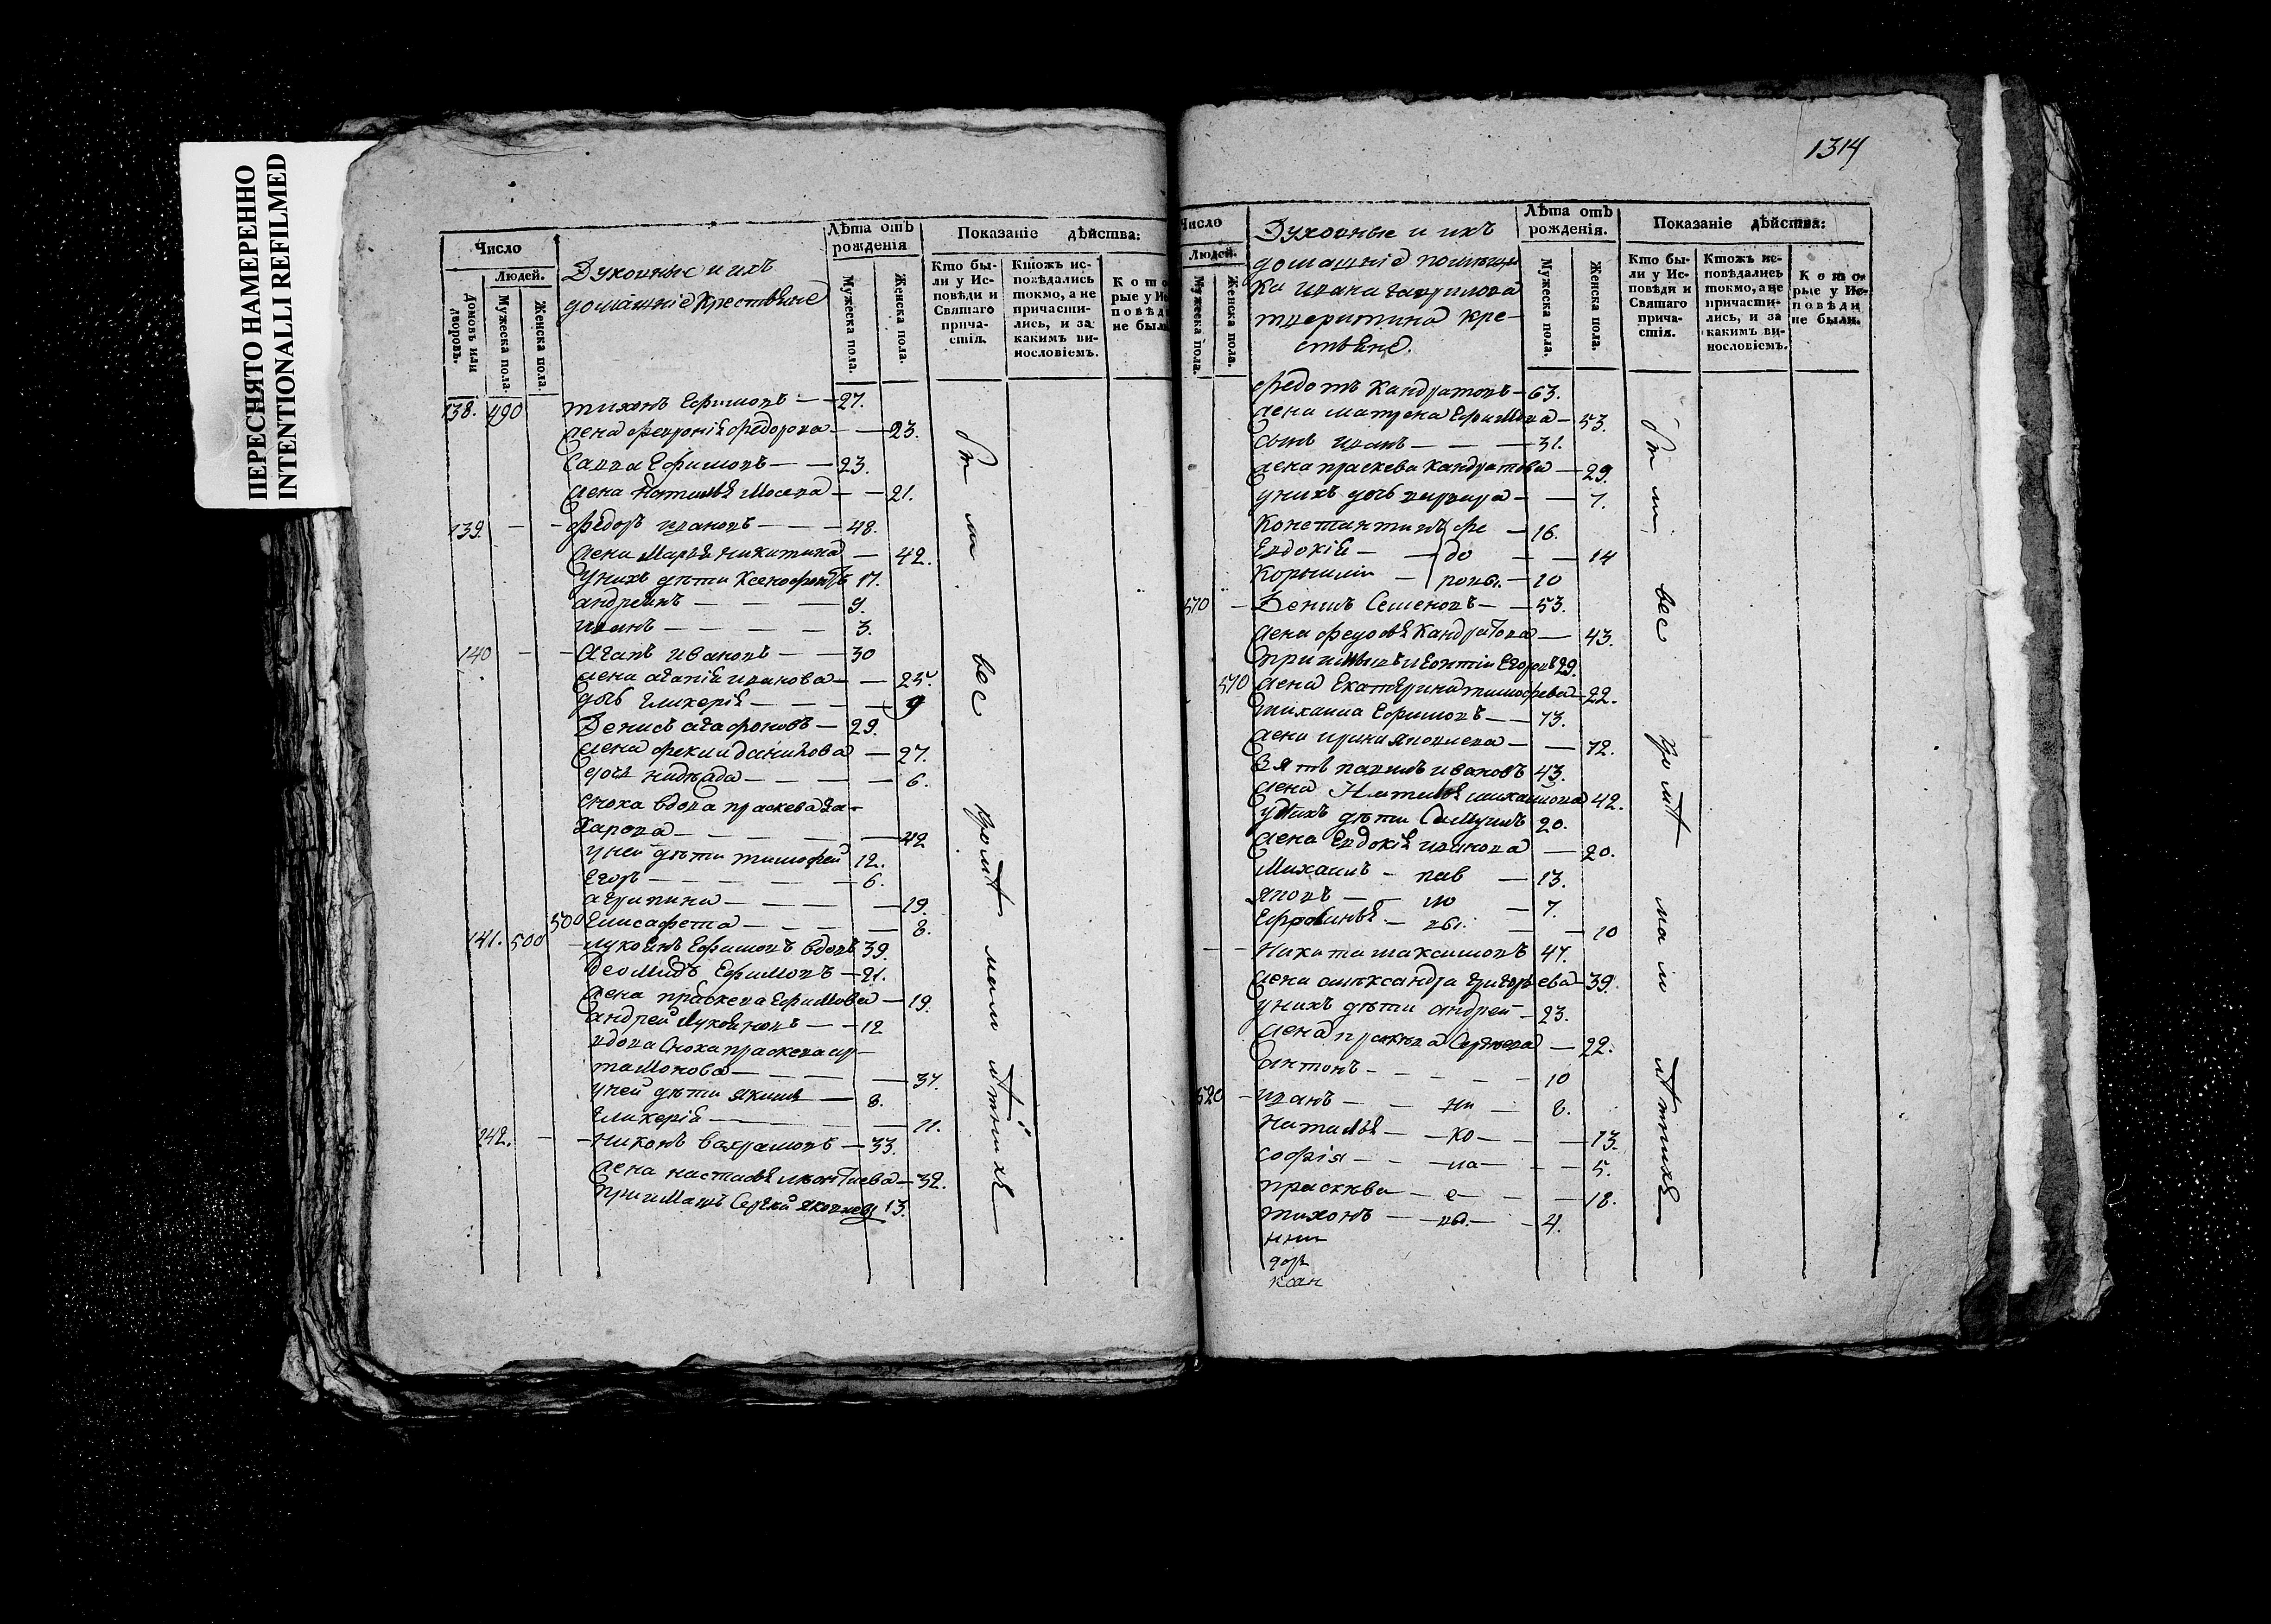 ПЕРЕСНЯТО НАМЕРЕННО
INTENTIONALLI REFILMED
Число
Людей.
Домовъ или дворовъ.
Мужеска пола.
Женска пола.
Духовные и ихъ
домашніе крестьяне
Лѣта отъ рожденія
Мужеска пола.
Женска пола.
Показаніе дѣйства:
Кто бы-
ли у Ис-
повѣди и
Святаго
прича-
стія.
Ктожъ ис-
повѣдались
токмо, а не
причасти-
лись, и за
какимъ ви-
нословіемъ.
Кото
рые у Ис
повѣд
не были
138. 490 тихонъ Ефимовъ — 27.
жена феврония федорова — 23.
Савва Ефимовъ — 23.
жена Наталья Мосева — 21.
139. федоръ ивановъ — 48.
жена Марья никитина — 42.
у нихъ дѣти Ксенофонтъ 17.
андреянъ — 9.
иванъ — 3.
140 Агапъ ивановъ — 30
жена агапія иванова — 25.
дочь гликерія — 9
Денисъ агафоновъ — 29.
жена фекла данилова — 27.
дочь — 6.
сноха вдова праскева за-
харова — 42
у ней дѣти тимофей 12.
Егоръ — 6.
агрипина — 19.
500 Елисафета — 8.
141. 500 лукоянъ Ефимовъ вдовъ 39.
Деомидъ Ефимовъ — 21.
жена праскева Ефимова — 19.
андрей Лукояновъ — 12
вдова сноха праскева ар-
тамонова — 37.
у ней дѣти якимъ — 8.
гликерія — 11.
142. никонъ вахрамовъ — 33.
жена настасья леонтиева — 32.
Сергей яковлевъ 13.
вес
1314
Число
Людей.
Мужеска пола.
Женска пола.
Духовные и ихъ
домашніе помѣщи
ка ивана гаврилова
кре-
стьяне.
Лѣта отъ рожденія.
Мужеска пола.
Женска пола.
Показаніе дѣйства:
Кто бы-
ли у Ис-
повѣди и
Святаго
прича-
стія.
Ктожъ ис-
повѣдались
токмо, а не
причасти-
лись, и за
какимъ ви-
нословіемъ.
Кото-
рые у Ис-
повѣди
не были.
федотъ Кандратовъ — 63.
жена матрена Ефимова — 53.
Сынъ иванъ — 31.
жена праскева кандратова — 29.
у нихъ дочь варвара — 7.
Константинъ фе — 16.
Евдокія — до — 14
Корнилий — ровы. — 10
510 Денисъ Семеновъ — 53.
жена федосья Кандратова — 43.
леонтій Егоровъ 29.
510 жена Екатерина тимофеева — 22.
михаила Ефимовъ — 73.
жена ирина яковлева — 72.
Зять павелъ ивановъ 43.
жена Наталья михайлова 42.
у нихъ дѣти Самуилъ 20.
жена Евдокія иванова — 20.
Михаилъ — пав — 13.
яковъ — ло — 7.
Ефросинья — вы. — 10
Никита максимовъ 47.
жена александра григорьева — 39.
у нихъ дѣти андрей — 23.
жена праскева Сергеева — 22.
антонъ — 10
520 иванъ — ни — 8.
Наталья — ко — 13.
софія — ла — 5.
праскева — е — 18.
тихонъ — вы. — 4.
вес